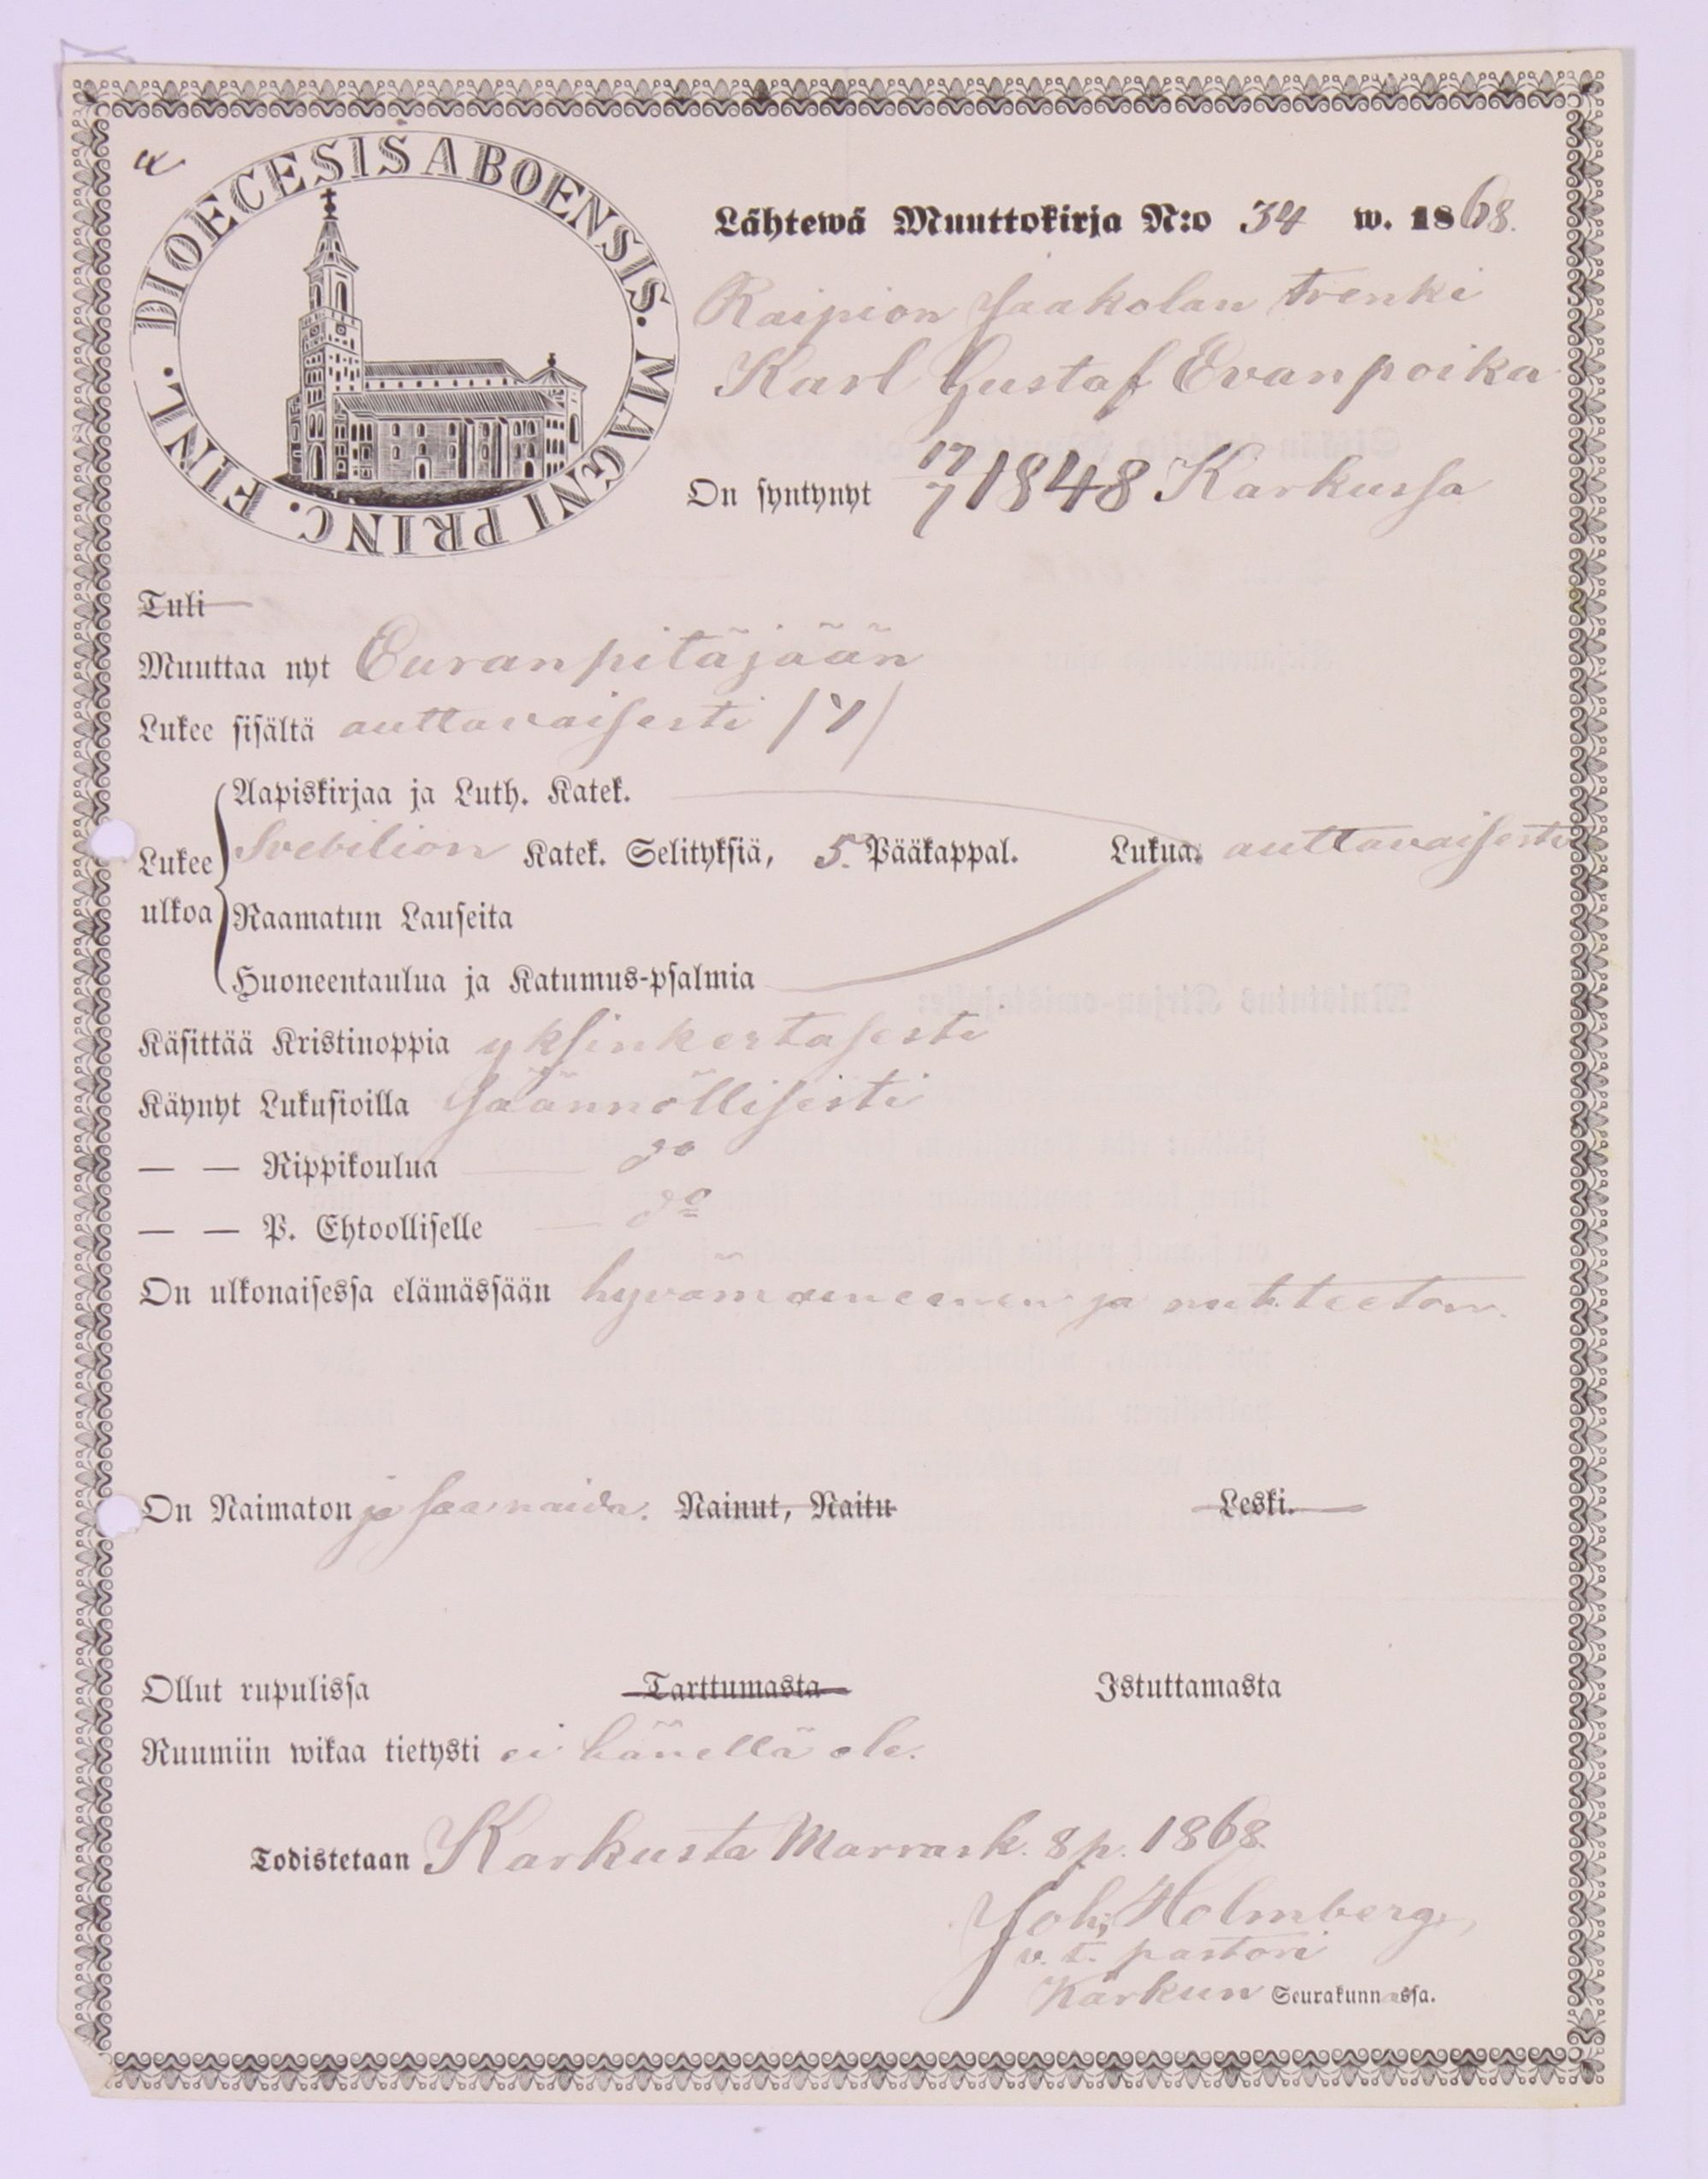 DIOECESIS ABOENSIS. MAGNI PRINC. FINL.
Lähtewä Muuttokirja N:o 34 w. 1868.
Raipion Jaakolan trenki
Karl Gustaf Evanpoika
On syntynyt 17/7 1848 Karkussa
Tuli
Muuttaa nyt Euranpitäjään
Lukee sisältä auttavaisesti
Aapiskirjaa ja Luth. Katek.
Lukee Svebilion Katek. Selityksiä, 5. Pääkappal. Lukua. auttavaisesti
ulkoa Raamatun Lauseita
Huoneentaulua ja Katumus-psalmia
Käsittää Kristinoppia yksinkertasesti
Käynyt Lukusioilla säännöllisesti
— — Rippikoulua — do
— — P. Ehtoolliselle — do
On ulkonaisessa elämässään hyvämaineinen ja nuhteeton.
On Naimaton ja saa naida. Nainut, Naitu Leski.
Ollut rupulissa Tarttumasta Istuttamasta
Ruumiin wikaa tietysti ei hänellä ole.
Todistetaan Karkusta Marrask. 8 p. 1868.
Joh. Holmberg,
v. t. pastori
Karkun Seurakunnassa.